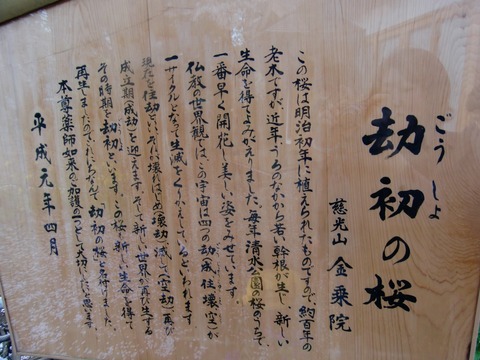 ごうしょ
劫初の桜
慈光山 金乗院
この桜は明治初年に植えられたものですので、約百年の
老木ですが、近年うろのなかから若い幹根が生じ、新しい
生命を得てよみがえりました。毎年清水公園の桜のうちで
一番早く開花し美しい姿をみせています。
仏教の世界観では、この宇宙は四つの劫(成住壊空)が
一サイクルとなって生滅をくりかえしているといわれます。
現在を住劫といい、それが壊れはじめ(壊劫)滅して(空劫)再び
成立期(成劫)を迎えます。そして新しい世界が再び生ずる
その時期を劫初といいます。この桜も新しい生命を得て
再生しましたのでそれにちなんで「劫初の桜」と名付けました。
本尊薬師如来のご加護の一つとして大切にしたいと思います
平成元年四月